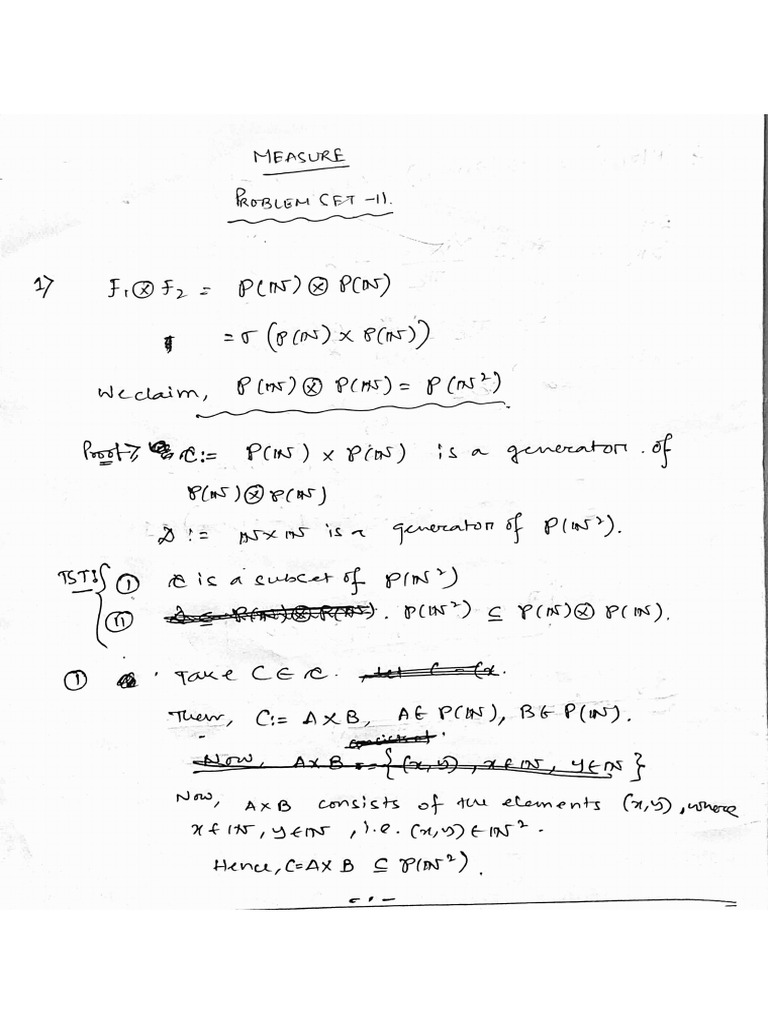 MEASURE
PROBLEM SET -11.
1) F₁ ⊗ F₂ = P(ℕ) ⊗ P(ℕ)
= σ (P(ℕ) × P(ℕ))
We claim, P(ℕ) ⊗ P(ℕ) = P(ℕ²)
Proof> C := P(ℕ) × P(ℕ) is a generator of
P(ℕ) ⊗ P(ℕ)
D := ℕ×ℕ is a generator of P(ℕ²).
TST: { (I) C is a subset of P(ℕ²)
(II) P(ℕ²) ⊆ P(ℕ) ⊗ P(ℕ).
(I) Take C ∈ C.
Then, C := A × B, A ∈ P(ℕ), B ∈ P(ℕ).
consists of
Now, A×B = {(x,y), x∈ℕ, y∈ℕ}
Now, A×B consists of the elements (x,y), where
x∈ℕ, y∈ℕ, i.e. (x,y) ∈ ℕ².
Hence, C=A×B ⊆ P(ℕ²).